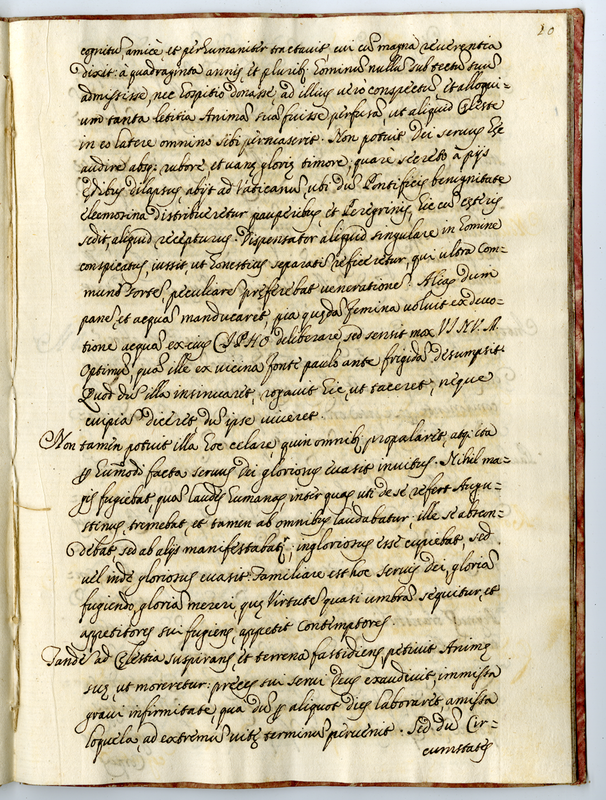 20
cognitū, amicè, et perhumaniter tractavit cui cū magna reverentia
dixit: à quadraginta annis, et plurib9 hominū nullū sub tectū suū
admisisse, nec hospitio donasse, ad illius vero conspectū, et alloqui-
um tanta letitia Animā suā fuisse perfusā, ut aliquid Cęleste
in eo latere omnino sibi persuaserit. Non potuit Dei servus hęc
audire absq: rubore, et vanę glorię timore; quare secreto à pijs
ędibus dilapsus, abijt ad Vaticanū, ubi dū Pontificis benignitate
eleemosina distribueretur pauperibus, et Peregrinis, hic cū cęteris
sedit, aliquid recepturus. Dispensator aliquid singulare in homine
conspicatus, iussit, ut honestius separatī reficeretur, qui ultra com-
munē sortē, peculiare pręferebat venerationē. Alias dum
panē, et aquā manducaret, pia quędā femina voluit ex devo-
tione aquā ex eius CYPHO deliberare, sed sensit mox VINVM
Optimū, quā ille ex vicina fonte paulo ante frigidā desumpsit.
Quod dū illa insinuaret, rogavit hic, ut taceret, neque
cuipiā diceret dū ipse viveret.
Non tamen potuit illa hoc celare, quin omnib9 propalaret, atq: ita
ꝑ huiusmodi facta servus Dei gloriosus evasit invitus. Nihil ma-
gis fugiebat, quā laudes humanas, inter quas, uti de se refert Augu-
stinus, tremebat, et tamen ab omnibus laudabatur; ille se abscon-
debat sed ab alijs manifestabatr; ingloriosus esse cupiebat, sed
vel inde gloriosus evasit. Familiare est hoc servis Dei, gloriā
fugiendo, gloriā mereri, quę Virtutē quasi umbra sequitur, et
appetitores sui fugiens, appetit contemptores
Tandē ad Cęlestia suspirans, et terrena fastidiens, petivit Animę
suę, ut moreretur: preces sui servi Deus exaudivit, immissa
gravi infirmitate, qua dū ꝑ aliquot dies laboraret, amissa
loquela, ad extremū vitę terminū pervenit. Sed dū Cir-
cumstātes